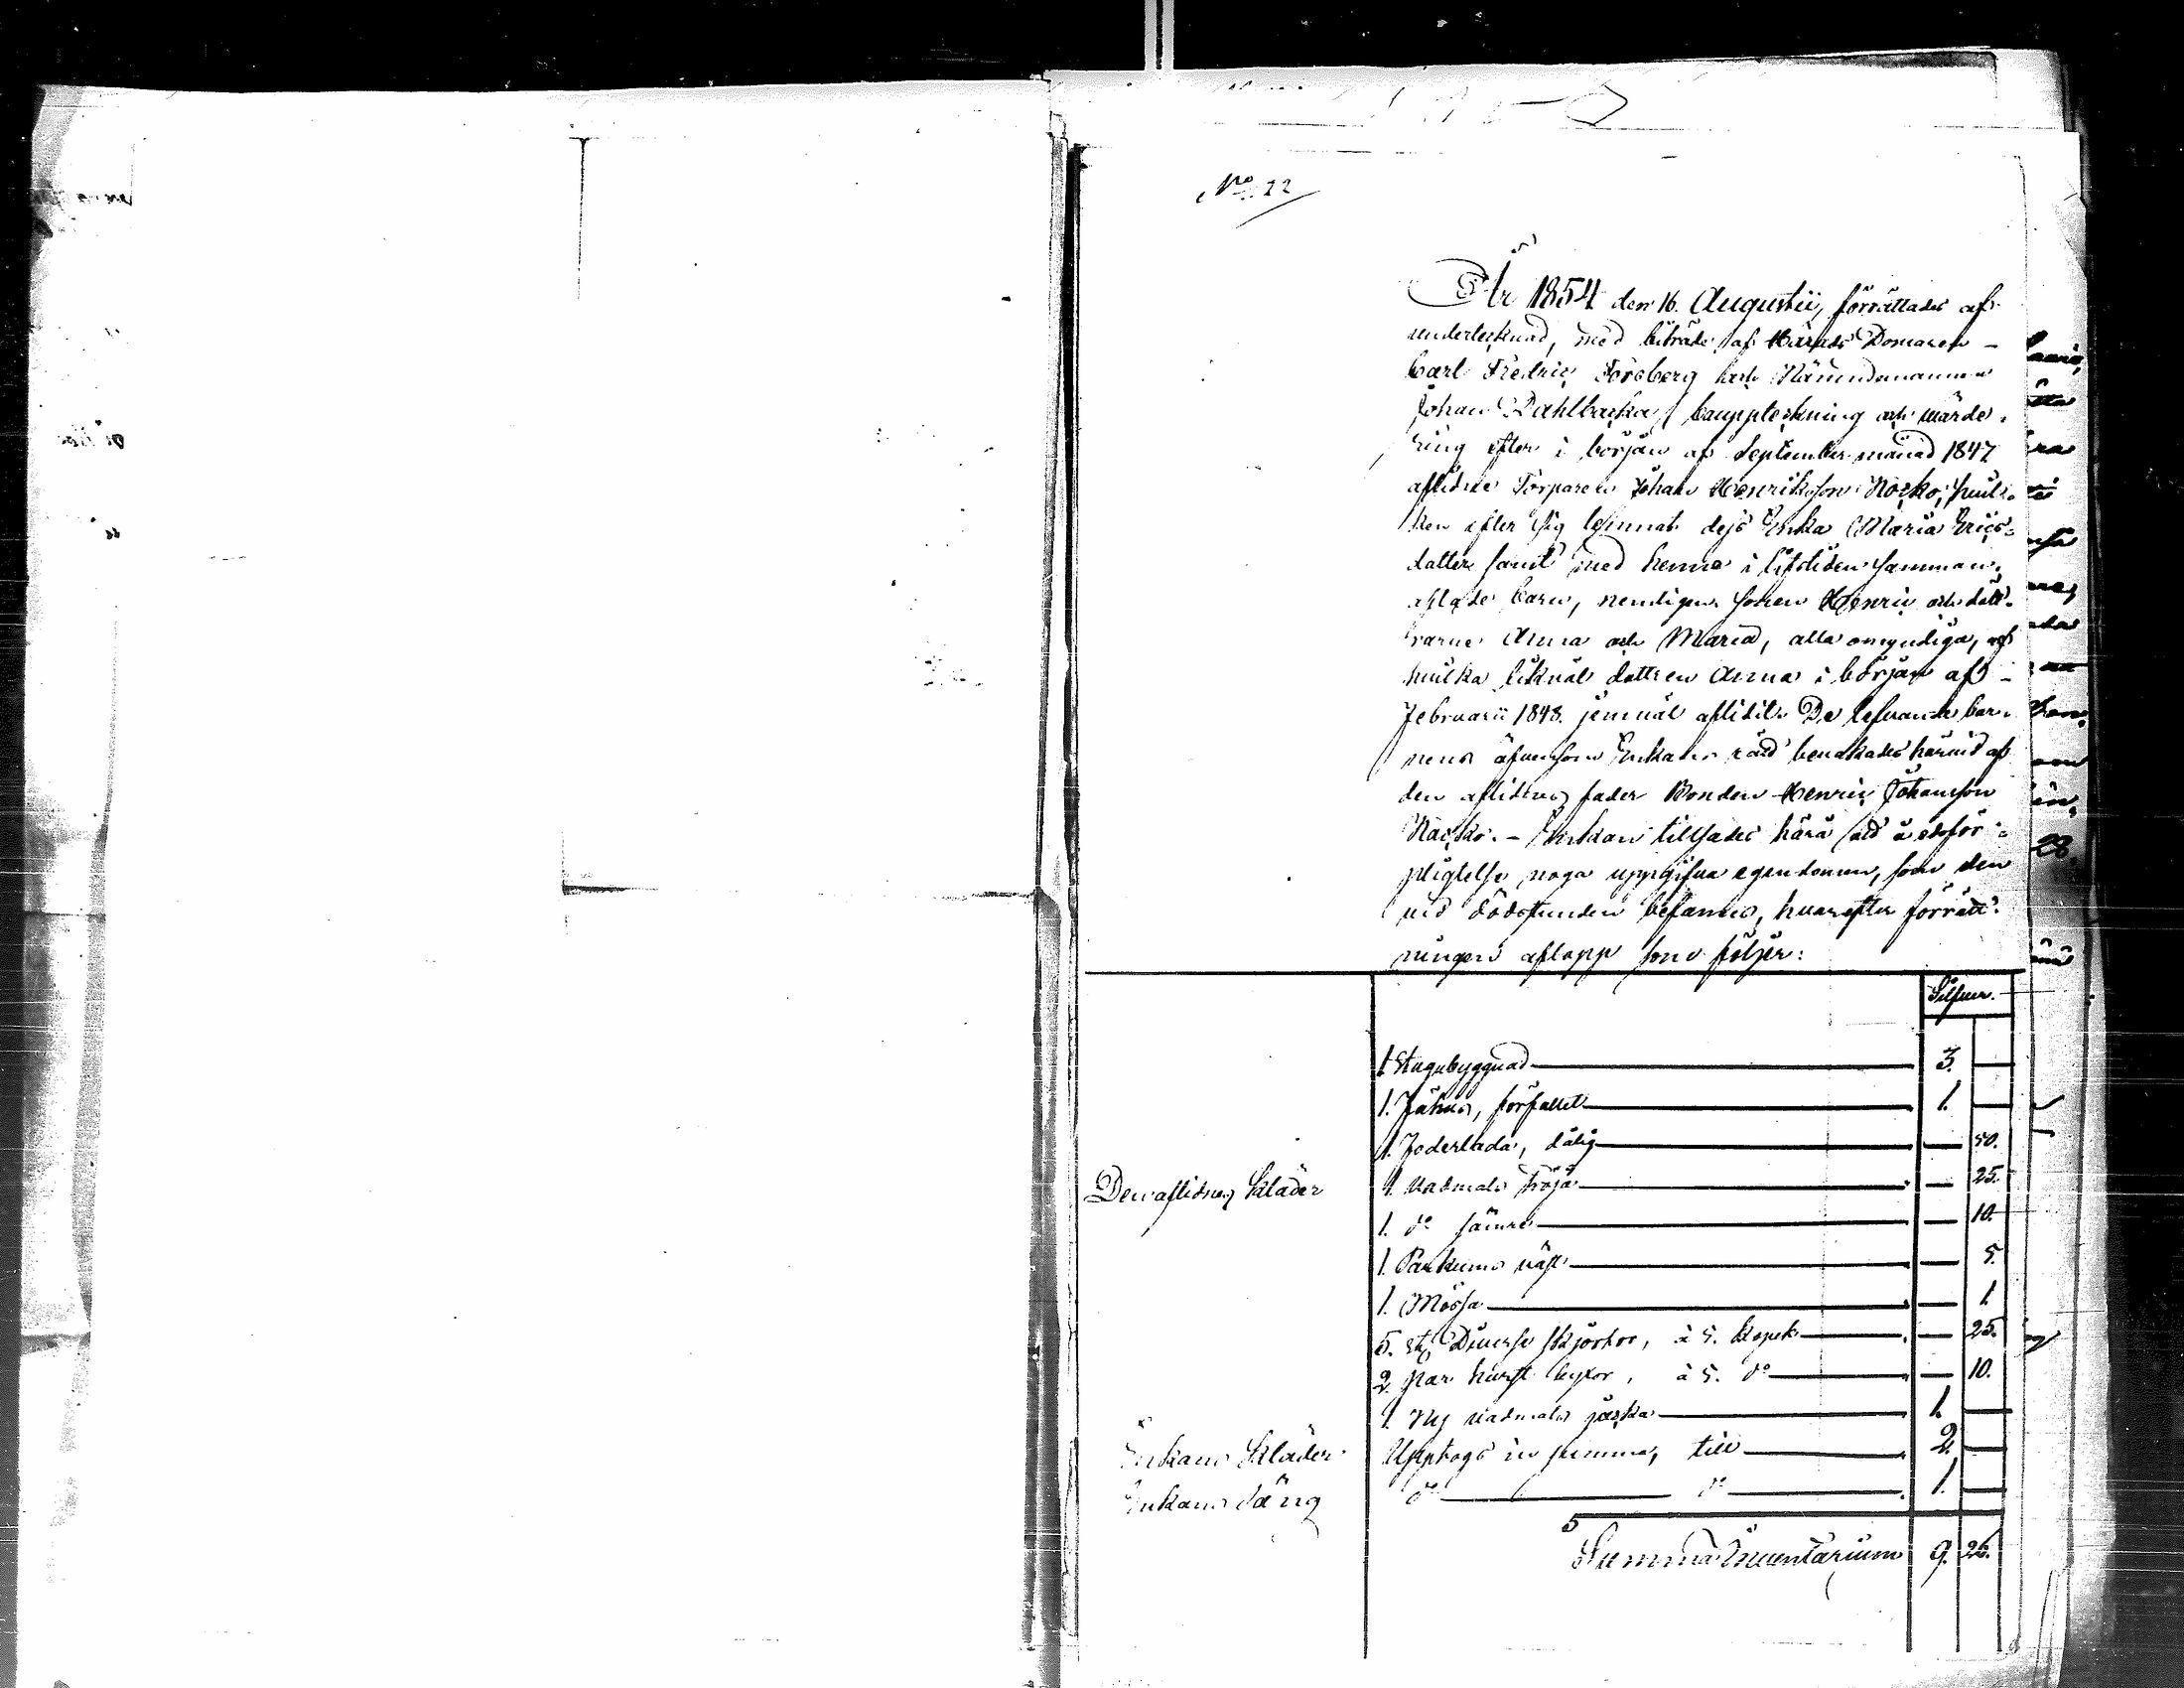 No. 22
År 1854 den 16. Augustii, förrättades af
undertecknad, med biträde af Härads Domaren
Carl Fredric Forsberg och Nämndemannen
Johan Dahlbacka, bouppteckning och värde-
ring efter i början af September månad 1847
aflidne Torparen Johan Henriksson Kacko, hvil-
ken efter sig lemnat dess Enka Maria Erics-
dotter samt med henne i lifstiden samman-
aflade barn, nemligen sonen Henric och dött-
rarne Anna och Maria, alla omyndiga, af
hvilka likväl dottren Anna i början af
Februarii 1848. jemväl aflidit. De lefvande bar-
nens äfvensom Enkans rätt bevakades härvid af
den aflidnes fader Bonden Henric Johansson
Kacko. - Enkan tillsades härå vid edsför-
pligtelse noga uppgifva egendomen, som den
vid dödsstunden befanns, hvarefter förrätt-
ningen aflopp som följer:
Silfver.
1. Stugubyggnad 3. —
1. Fähus, förfallet 1. —
1. Foderlada, dålig — 50.
Den aflidnes Kläder 1. Vadmals tröja — 25.
1. do sämre — 10.
1. Parkums väst — 5.
1. Mössa — 1.
5. st. Diverse skjortor, à 5. Kopek — 25.
2. par hvust byxor, à 5. do — 10.
1. Ny vadmals jacka 1. —
Enkans Kläder Upptogs in summa, till 2. —
Enkans Säng do do 1. —
Summa Inventarium 9. 26.